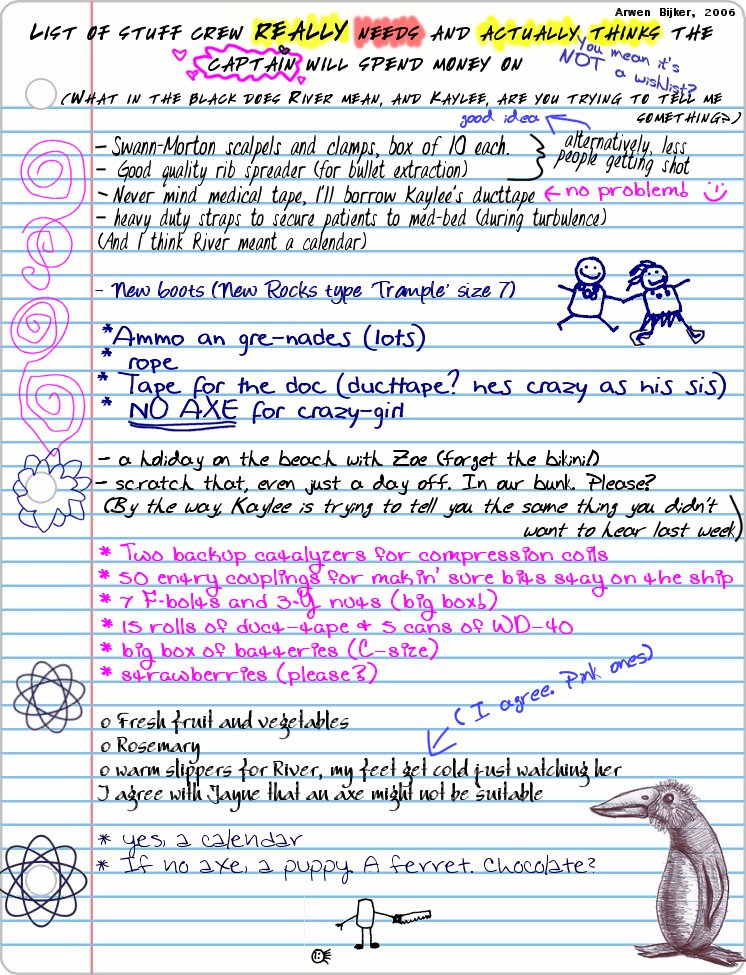 Arwen Bijker, 2006
LIST OF STUFF CREW REALLY NEEDS AND ACTUALLY THINKS THE
CAPTAIN WILL SPEND MONEY ON
You mean it's
NOT a wishlist?
(WHAT IN THE BLACK DOES RIVER MEAN, AND KAYLEE, ARE YOU TRYING TO TELL ME
SOMETHING?)
good idea
- Swann-Morton scalpels and clamps, box of 10 each.
- Good quality rib spreader (for bullet extraction)
alternatively, less
people getting shot
- Never mind medical tape, I'll borrow Kaylee's ducttape
no problem!
- heavy duty straps to secure patients to med-bed (during turbulence)
(And I think River meant a calendar)
- New boots (New Rocks type 'Trample' size 7)
*Ammo an gre-nades (lots)
* rope
* Tape for the doc (ducttape? hes crazy as his sis)
* NO AXE for crazy-girl
- a holiday on the beach with Zoe (forget the bikini!)
- scratch that, even just a day off. In our bunk. Please?
(By the way, Kaylee is trying to tell you the same thing you didn't
want to hear last week)
* Two backup catalyzers for compression coils
* 50 entry couplings for makin' sure bits stay on the ship
* 7 F-bolts and 3-Y nuts (big box!)
* 15 rolls of duct-tape & 5 cans of WD-40
* big box of batteries (C-size)
* strawberries (please?)
(I agree. Pink ones)
o Fresh fruit and vegetables
o Rosemary
o warm slippers for River, my feet get cold just watching her
I agree with Jayne that an axe might not be suitable
* yes, a calendar
* If no axe, a puppy. A ferret. Chocolate?